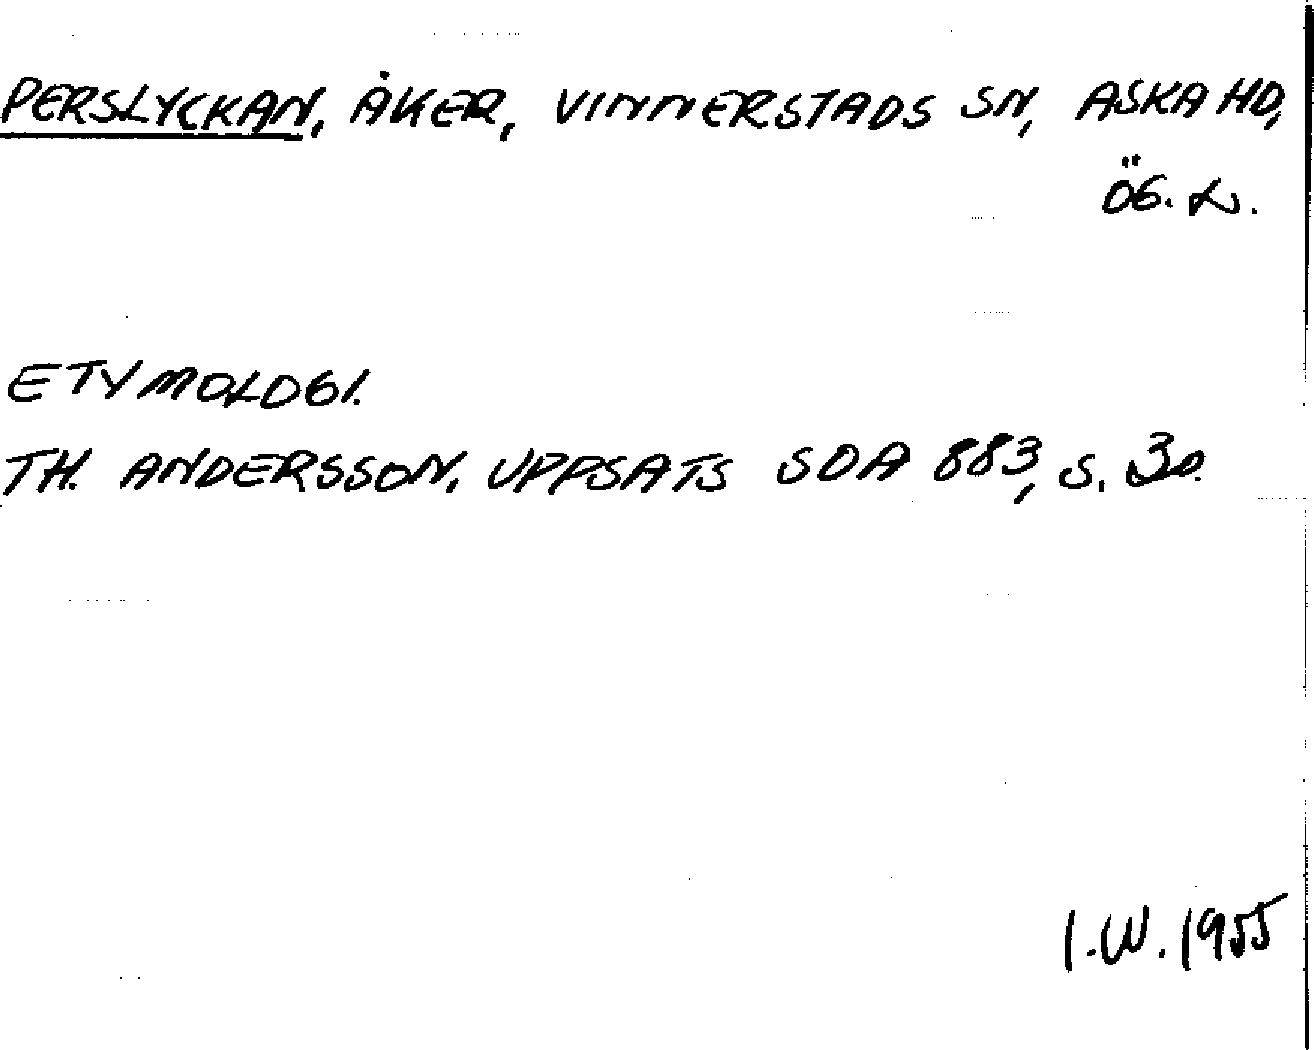 PERSLYCKAN, ÅKER, VINNERSTADS SN, ASKA HD,
ÖG. L.
ETYMOLOGI.
TH. ANDERSSON, UPPSATS SOA 883, S. 30.
I.W. 1955